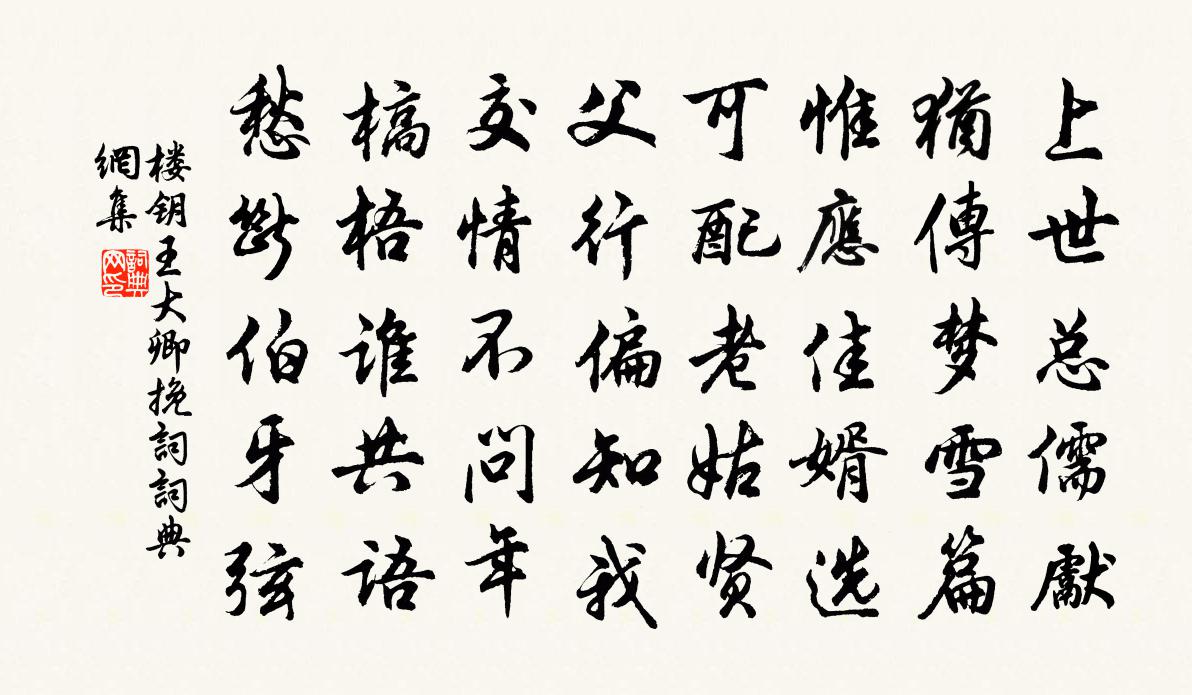 上世总儒獻
猶傳梦雪篇
惟應佳婿选
可配老姑贤
父行偏知我
交情不问年
槁梧谁共语
愁断伯牙弦
楼钥王大卿挽詞詞典
網集
詞典
网印